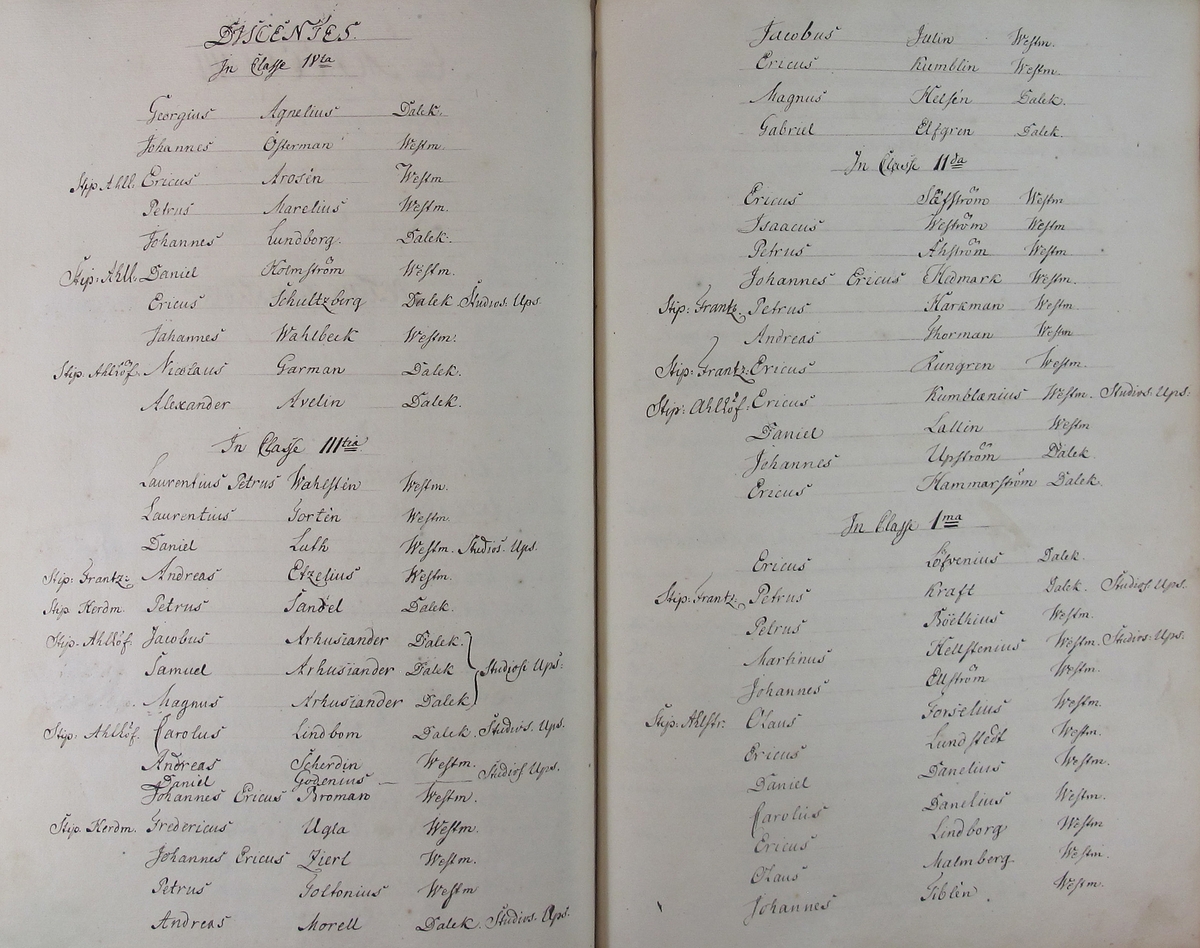 DISCENTES.
In Classe IVta
Georgius Agnelius Dalek.
Johannes Österman Westm.
Stip. Ahll. Ericus Arosén Westm.
Petrus Marelius Westm.
Johannes Lundborg. Dalek.
Stip: Ahll. Daniel Holmström Westm.
Ericus Schultzberg Dalek Studios. Ups.
Johannes Wahlbeck Westm:
Stip. Ahllöf. Nicolaus Garman Dalek.
Alexander Avelin Dalek.
In Classe IIItia
Laurentius Petrus Wahlstén Westm.
Laurentius Tortén Westm.
Daniel Luth Westm. Studios. Ups.
Stip: Frantz: Andreas Etzelius Westm.
Stip. Herdm. Petrus Sandel Dalek.
Stip. Ahllöf. Jacobus Arhusiander Dalek.
Samuel Arhusiander Dalek Studiose Ups:
Magnus Arhusiander Dalek
Stip: Ahllöf. Carolus Lindbom Dalek Studios. Ups.
Andreas Scherdin Westm.
Daniel Godenius — Studios Ups.
Johannes Ericus Broman Westm.
Stip. Herdm. Fredericus Ugla Westm.
Johannes Ericus Zierl Westm.
Petrus Toltonius Westm
Andreas Morell Dalek Studios. Ups.
Jacobus Julin Westm.
Ericus Kumblin Westm.
Magnus Helsén Dalek.
Gabriel Elfgren Dalek.
In Classe IIda
Ericus Säfström Westm
Isaacus Weström Westm
Petrus Åhström Westm.
Johannes Ericus Hedmark Westm.
Stip: Frantz. Petrus Harkman Westm.
Andreas Thorman Westm
Stip: Frantz: Ericus Rungren Westm.
Stip: Ahllöf. Ericus Kumblænius Westm. Studios: Ups:
Daniel Lallin Westm
Johannes Upström Dalek
Ericus Hammarström Dalek.
In Classe Ima
Ericus Löfvenius Dalek.
Stip: Frantz: Petrus Kraft Dalek Studios Ups.
Petrus Böethius Westm.
Martinus Hellstenius Westm. Studios: Ups.
Johannes Ellström Westm.
Stip: Ahlstr: Olaus Torselius Westm.
Ericus Lundstedt Westm.
Daniel Danelius Westm.
Carolus Danelius Westm.
Ericus Lindborg Westm
Olaus Malmberg Westm.
Johannes Tiblén Westm.